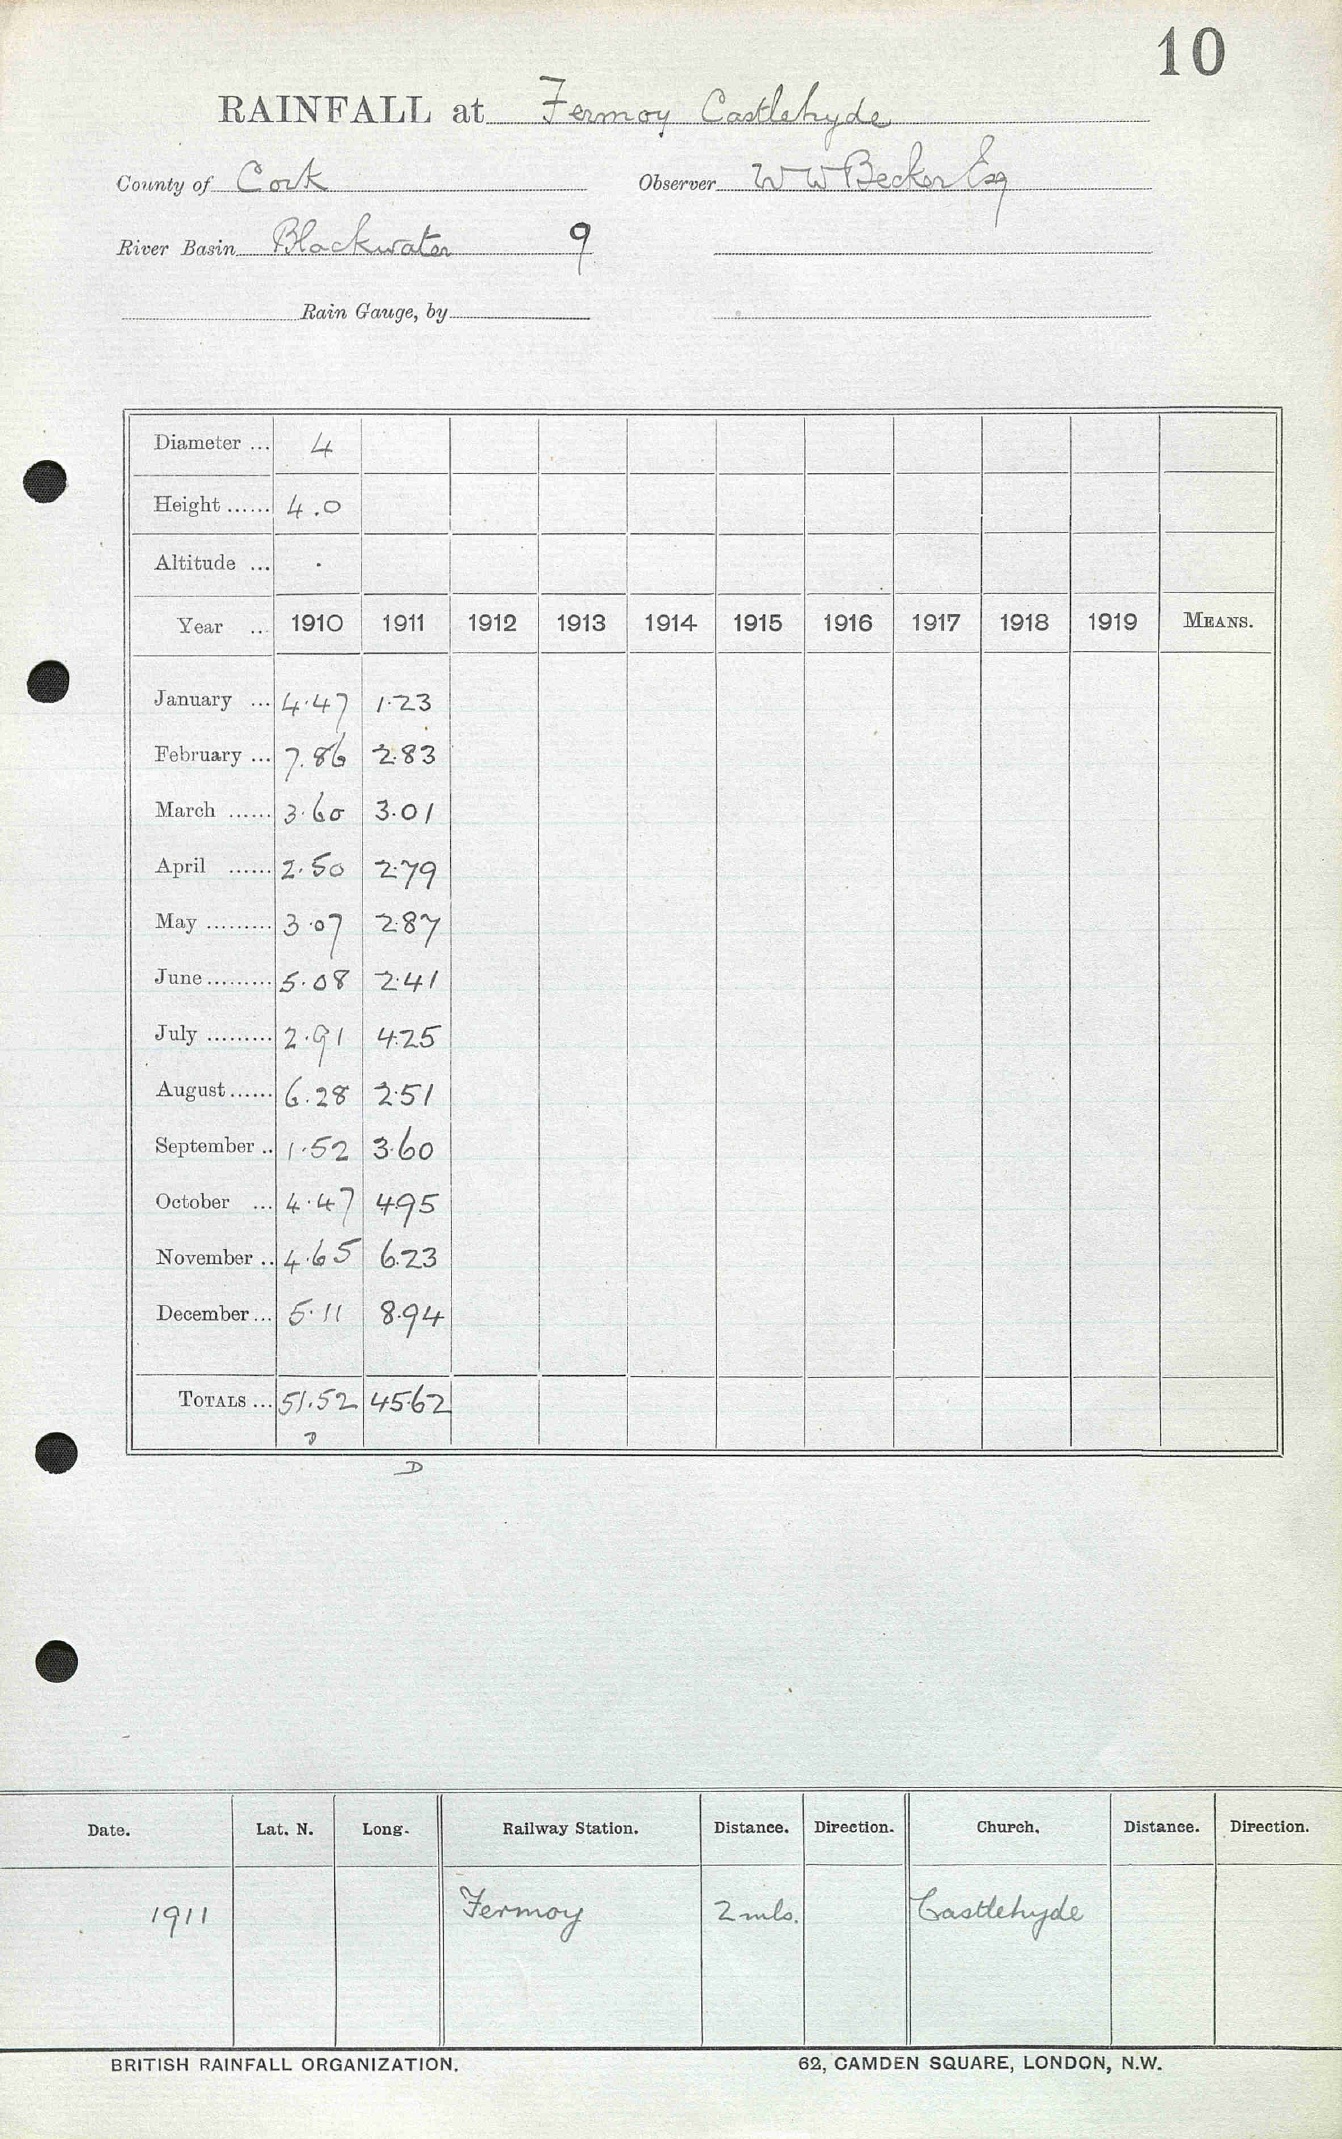 10
RAINFALL at Fermoy Castlehyde
County of Cork Observer W W Becker Esq
River Basin Blackwater 9
Rain Gauge, by
Diameter ... 4
Height ...... 4.0
Altitude ... .
Year ... 1910 1911 1912 1913 1914 1915 1916 1917 1918 1919 MEANS.
January ... 4.47 1.23
February ... 7.86 2.83
March ...... 3.60 3.01
April ...... 2.50 2.79
May ......... 3.07 2.87
June ......... 5.08 2.41
July ......... 2.91 4.25
August ...... 6.28 2.51
September .. 1.52 3.60
October ... 4.47 4.95
November .. 4.65 6.23
December ... 5.11 8.94
TOTALS ... 51.52 45.62
D
D
Date. Lat. N. Long. Railway Station. Distance. Direction. Church. Distance. Direction.
1911 Fermoy 2 mls. Castlehyde
BRITISH RAINFALL ORGANIZATION. 62, CAMDEN SQUARE, LONDON, N.W.